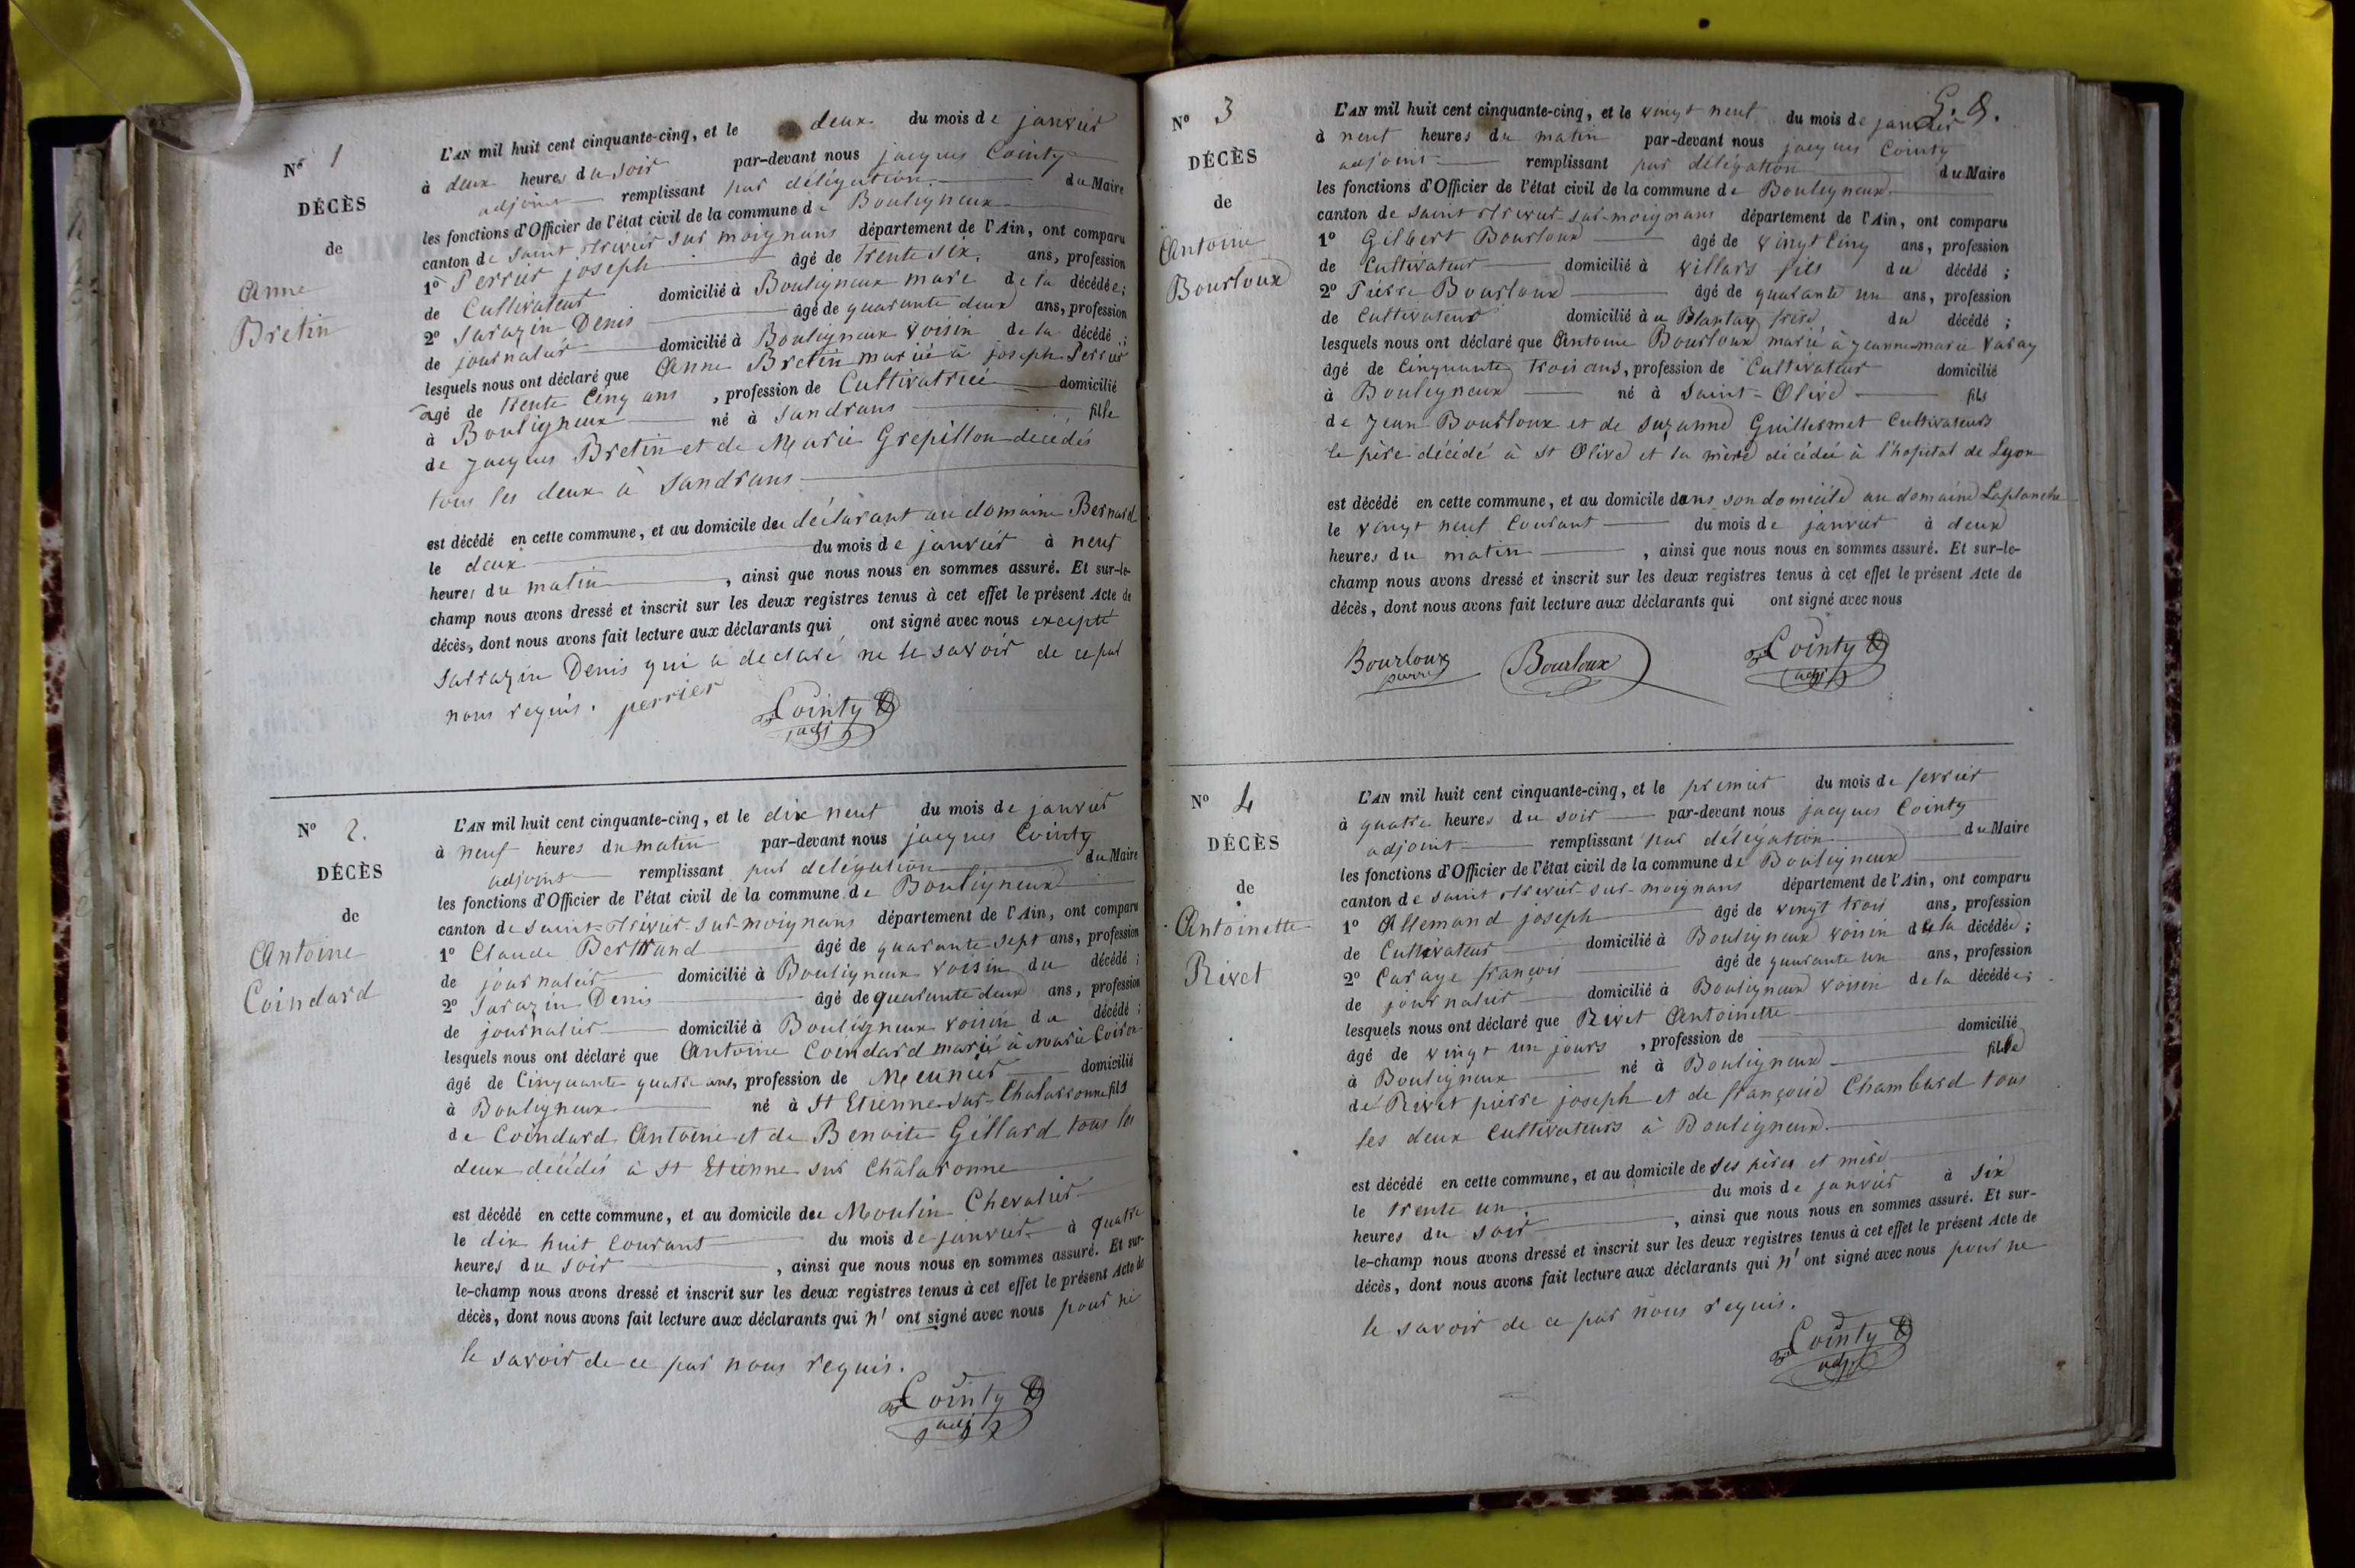 N° 1
DÉCÈS
de
Anne
Bretin
L'AN mil huit cent cinquante-cinq, et le deux du mois de janvier
à deux heures du soir par-devant nous jacques Cointy
adjoint remplissant par délégation du Maire
les fonctions d'Officier de l'état civil de la commune de Bouligneux
canton de saint trivier sur moignans département de l'Ain, ont comparu
1° Perrier joseph âgé de trente six ans, profession
de Cultivateur domicilié à Bouligneux mari de la décédée;
2° Sarazin Denis âgé de quarante deux ans, profession
de journalier domicilié à Bouligneux voisin de la décédé;
lesquels nous ont déclaré que Anne Bretin mariée à joseph Perrier
âgé de trente cinq ans, profession de Cultivatrice domicilié
à Bouligneux né à Sandrans fille
de jacques Bretin et de Marie Grepillon décédés
tous les deux à Sandrans
est décédé en cette commune, et au domicile du déclarant au domaine Bernard
le deux du mois de janvier à neuf
heures du matin, ainsi que nous nous en sommes assuré. Et sur-le-
champ nous avons dressé et inscrit sur les deux registres tenus à cet effet le présent Acte de
décès, dont nous avons fait lecture aux déclarants qui ont signé avec nous excepté
Sarrazin Denis qui a declaré ne le savoir de ce par
nous requis. perrier
Cointy
adj
N° 2.
DÉCÈS
de
Antoine
Coindard
L'AN mil huit cent cinquante-cinq, et le dix neuf du mois de janvier
à neuf heures du matin par-devant nous jacques Cointy
adjoint remplissant par délégation du Maire
les fonctions d'Officier de l'état civil de la commune de Bouligneux
canton de saint-trivier-sur-moignans département de l'Ain, ont comparu
1° Claude Bertrand âgé de quarante sept ans, profession
de journalier domicilié à Bouligneux voisin du décédé;
2° Sarazin Denis âgé de quarante deux ans, profession
de journalier domicilié à Bouligneux voisin du décédé;
lesquels nous ont déclaré que Antoine Coindard marié à Marie Coiron
âgé de Cinquante quatre ans, profession de Meunier domicilié
à Bouligneux né à St Etienne-sur-Chalaronne fils
de Coindard Antoine et de Benoite Gillard tous les
deux décédés à St Etienne sur Châlaronne
est décédé en cette commune, et au domicile du Moulin Chevalier
le dix huit Courant du mois de janvier à quatre
heures du soir, ainsi que nous nous en sommes assuré. Et sur-
le-champ nous avons dressé et inscrit sur les deux registres tenus à cet effet le présent Acte de
décès, dont nous avons fait lecture aux déclarants qui n'ont signé avec nous pour ne
le savoir de ce par nous requis.
Cointy
adj
N° 3
DÉCÈS
de
Antoine
Bourloux
L'AN mil huit cent cinquante-cinq, et le vingt neuf du mois de janvier
à neuf heures du matin par-devant nous jacques Cointy
adjoint remplissant par délégation du Maire
les fonctions d'Officier de l'état civil de la commune de Bouligneux
canton de saint trivier-sur-moignans département de l'Ain, ont comparu
1° Gilbert Bourloux âgé de vingt Cinq ans, profession
de Cultivateur domicilié à villars fils du décédé;
2° Pierre Bourloux âgé de quarante un ans, profession
de Cultivateur domicilié à u Plantay frère du décédé;
lesquels nous ont déclaré que Antoine Bourloux marié à jeanne-marie varay
âgé de Cinquante trois ans, profession de Cultivateur domicilié
à Bouligneux né à Saint-Olive fils
de Jean Bourloux et de Suzanne Guillermet Cultivateurs
le père décédé à St Olive et la mère décédée à l'hopital de Lyon
est décédé en cette commune, et au domicile dans son domicile au domaine Laplanche
le vingt neuf Courant du mois de janvier à deux
heures du matin, ainsi que nous nous en sommes assuré. Et sur-le-
champ nous avons dressé et inscrit sur les deux registres tenus à cet effet le présent Acte de
décès, dont nous avons fait lecture aux déclarants qui ont signé avec nous
Bourloux pierre Bourloux Cointy
adj
N° 4
DÉCÈS
de
Antoinette
Rivet
L'AN mil huit cent cinquante-cinq, et le premier du mois de fevrier
à quatre heures du soir par-devant nous jacques Cointy
adjoint remplissant par délégation du Maire
les fonctions d'Officier de l'état civil de la commune de Bouligneux
canton de saint trivier-sur-moignans département de l'Ain, ont comparu
1° Allemand joseph âgé de vingt trois ans, profession
de Cultivateur domicilié à Bouligneux voisin de la décédée;
2° Carage françois âgé de quarante un ans, profession
de journalier domicilié à Bouligneux voisin de la décédée;
lesquels nous ont déclaré que Rivet Antoinette
âgé de vingt un jours, profession de domicilié
à Bouligneux né à Bouligneux fille
de Rivet pierre joseph et de françoise Chambard tous
les deux Cultivateurs à Bouligneux
est décédé en cette commune, et au domicile de ses père et mère
le trente un du mois de janvier à Six
heures du soir, ainsi que nous nous en sommes assuré. Et sur-
le-champ nous avons dressé et inscrit sur les deux registres tenus à cet effet le présent Acte de
décès, dont nous avons fait lecture aux déclarants qui n'ont signé avec nous pour ne
le savoir de ce par nous requis.
Cointy
adj